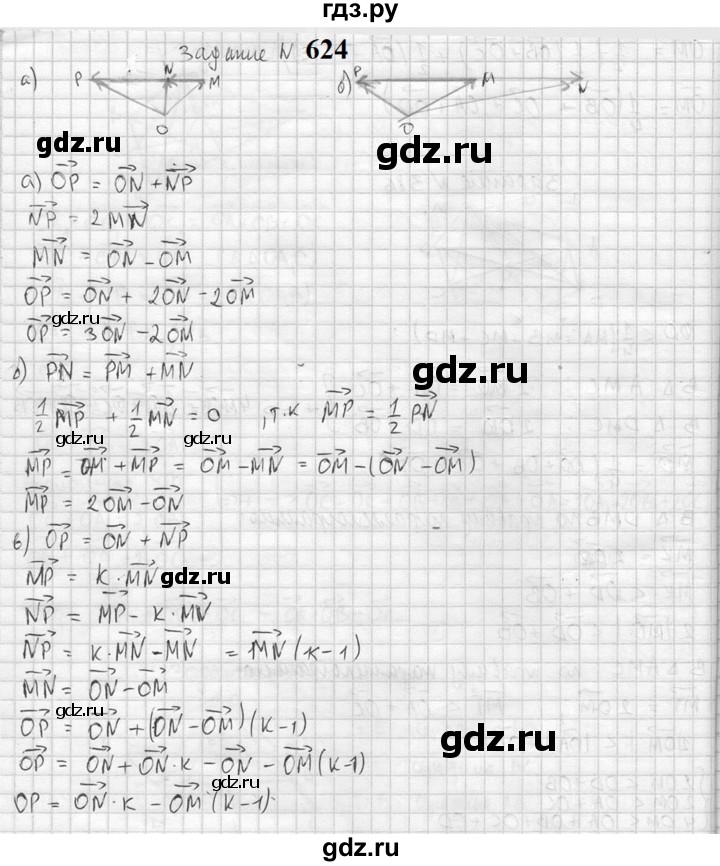 гдз.ру
задание N 624
а) P N M O б) P M N O
gdz.ru gdz.ru
а) OP = ON + NP
NP = 2MN
MN = ON - OM
OP = ON + 2ON - 2OM
gdz.ru
OP = 3ON - 2OM
gdz.ru
б) PN = PM + MN
1/2 MP + 1/2 MN = 0 , т.к MP = 1/2 PN
gdz.ru gdz.ru
MP = OM + MP = OM - MN = OM - (ON - OM)
MP = 2OM - ON
в) OP = ON + NP
MP = k · MN gdz.ru
NP = MP - k · MN
NP = k · MN - MN = MN (k - 1)
MN = ON - OM
gdz.ru
OP = ON + (ON - OM) (k - 1)
gdz.ru
OP = ON + ON · k - ON - OM (k - 1)
OP = ON · k - OM (k - 1)
gdz.ru